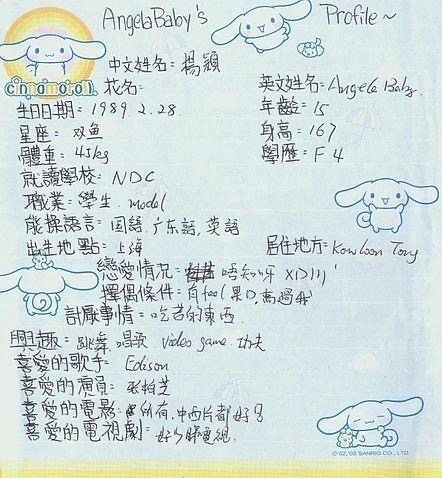 AngelaBaby's Profile~
cinnamoroll
中文姓名= 楊穎
花名=
英文姓名= Angela Baby.
生日日期= 1989.2.28.
年齡= 15
星座= 双鱼
身高= 167
體重= 45kg
學歷= F4
就讀學校= NDC
職業= 學生. model
能操語言= 国語. 广东話, 英語
出生地點= 上海
居住地方= Kowloon Tong
戀愛情況= 唔知呀 XD111'
擇偶條件= 有feel果D, 高過我
討厭事情= 吃苦的東西
興趣= 跳舞. 唱歌. video game. 功夫
喜愛的歌手= Edison
喜愛的演員= 張柏芝
喜愛的電影= 所有, 中西片都好
喜愛的電視劇= 好少睇電視.
©'02,'03 SANRIO CO., LTD.